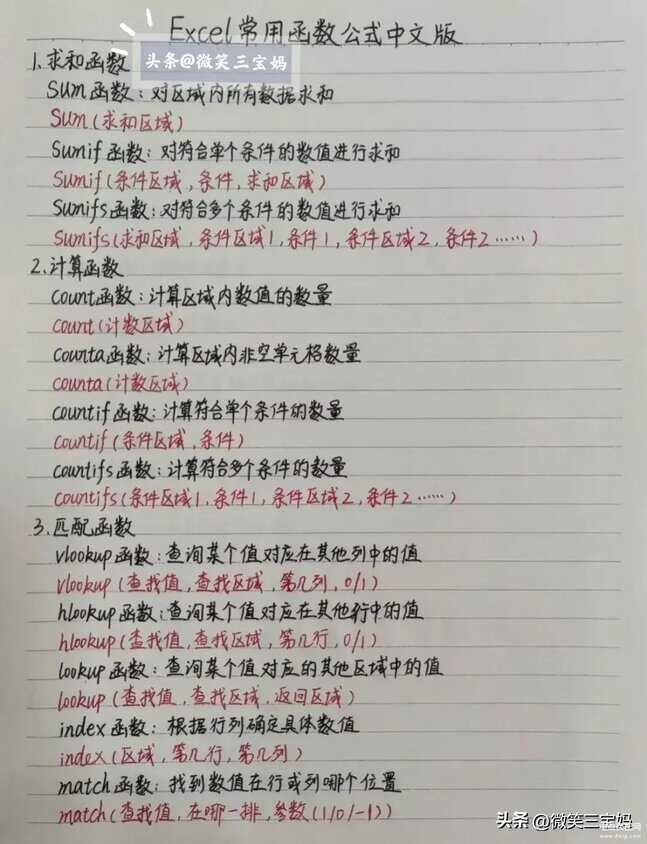 Excel常用函数公式中文版
头条@微笑三宝妈
1.求和函数
Sum函数：对区域内所有数据求和
Sum(求和区域)
Sumif函数：对符合单个条件的数值进行求和
Sumif(条件区域,条件,求和区域)
Sumifs函数：对符合多个条件的数值进行求和
Sumifs(求和区域,条件区域1,条件1,条件区域2,条件2……)
2.计算函数
count函数：计算区域内数值的数量
count(计数区域)
counta函数：计算区域内非空单元格数量
counta(计数区域)
countif函数：计算符合单个条件的数量
countif(条件区域,条件)
countifs函数：计算符合多个条件的数量
countifs(条件区域1,条件1,条件区域2,条件2……)
3.匹配函数
vlookup函数：查询某个值对应在其他列中的值
vlookup(查找值,查找区域,第几列,0/1)
hlookup函数：查询某个值对应在其他行中的值
hlookup(查找值,查找区域,第几行,0/1)
lookup函数：查询某个值对应的其他区域中的值
lookup(查找值,查找区域,返回区域)
index函数：根据行列确定具体数值
index(区域,第几行,第几列)
match函数：找到数值在行或列哪个位置
match(查找值,在哪一排,参数(1/0/-1))
头条@微笑三宝妈